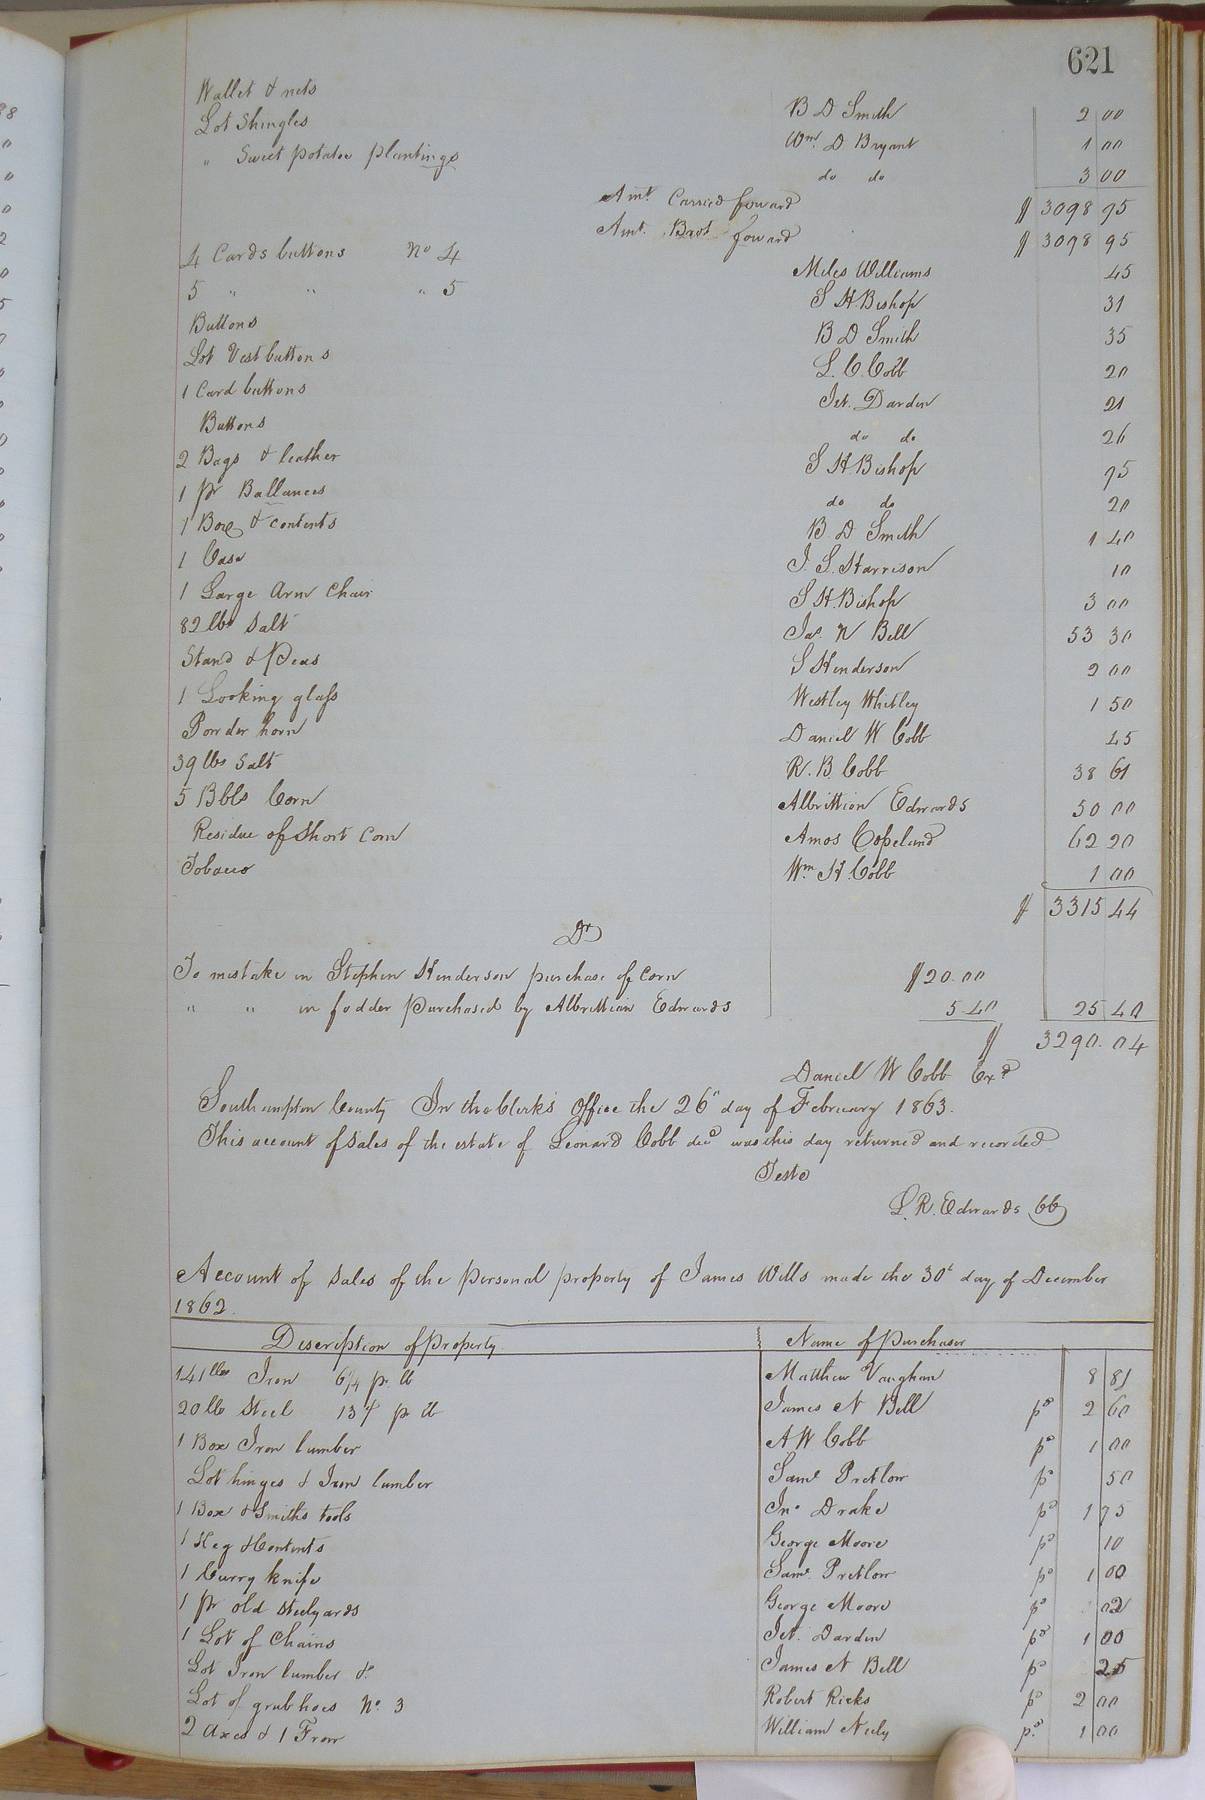 621
Wallet & nets B D Smith 2 00
Lot Shingles Wm D Bryant 1 00
" Sweet potatoe plantings do do 3 00
Amt. Carried foward $ 3098 95
Amt. Brot foward $ 3098 95
4 Cards buttons No 4 Miles Williams 45
5 " " " 5 S H. Bishop 31
Buttons B D Smith 35
Lot Vest buttons L. C. Cobb 20
1 Card buttons Jet. Darden 21
Buttons do do 26
2 Bags & leather S H Bishop 75
1 pr Ballances do do 20
1 Box & contents B D Smith 1 40
1 Case J. S. Harrison 10
1 Large Arm Chair S H. Bishop 3 00
82 lbs Salt Jas. N Bell 53 30
Stand & Peas S Henderson 2 00
1 Looking glass Westley Whitley 1 50
Powder horn Daniel W Cobb 45
39 lbs Salt R. B. Cobb 38 61
5 Bbls Corn Albrittion Edwards 50 00
Residue of Short Corn Amos Copeland 62 20
Tobacco Wm H. Cobb 1 00
$ 3315 44
Dr
To mistake in Stephen Henderson purchase of Corn $20.00
" " in fodder purchased by Albrittian Edwards 5 40 25 40
$ 3290.04
Daniel W Cobb Exr
Southampton County In the Clerk's Office the 26" day of February 1863.
This account of Sales of the estate of Leonard Cobb decd was this day returned and recorded
Teste
L. R. Edwards CC
Account of Sales of the personal property of James Wills made the 30t day of December
1862.
Description of property Name of purchaser
141 lbs Iron 6¼ pr. lb Matthew Vaughan 8 81
20 lb Steel 13 ¢ p lb James N Bell pd 2 60
1 Box Iron lumber A W Cobb pd 1 00
Lot hinges & Iron lumber Saml Pretlow pd 50
1 Box & Smiths tools Jno Drake pd 1 75
1 Keg & Contents George Moore pd 10
1 Curry knife Saml. Pretlow pd 1 00
1 pr old steelyards George Moore pd 02
1 Lot of Chains Jet. Darden pd 1 00
Lot Iron lumber &c James N Bell pd 25
Lot of grub hoes No. 3 Robert Ricks pd 2 00
2 Axes & 1 Frow William Neely pd 1 00